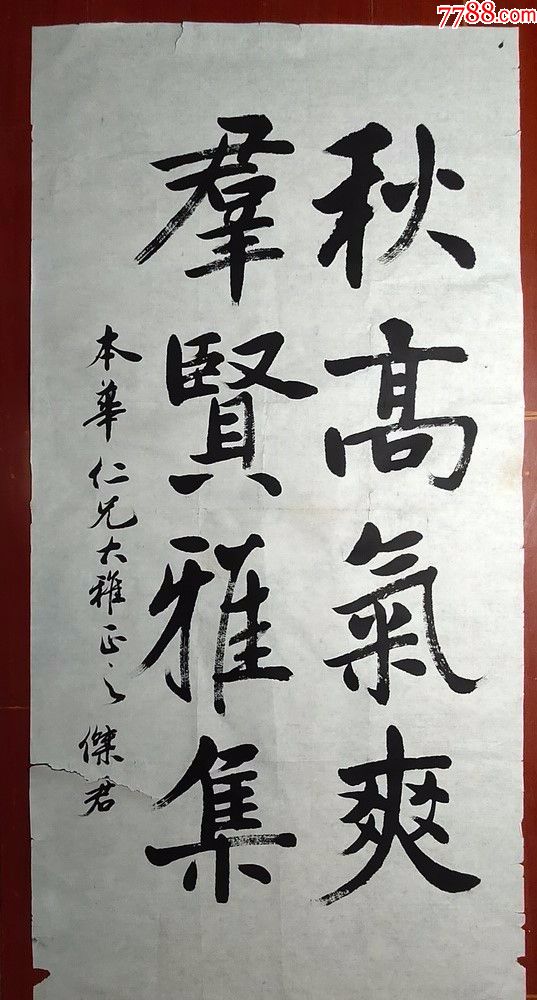 7788.com
秋高氣爽
羣賢雅集
本華仁兄大雅正之 傑君